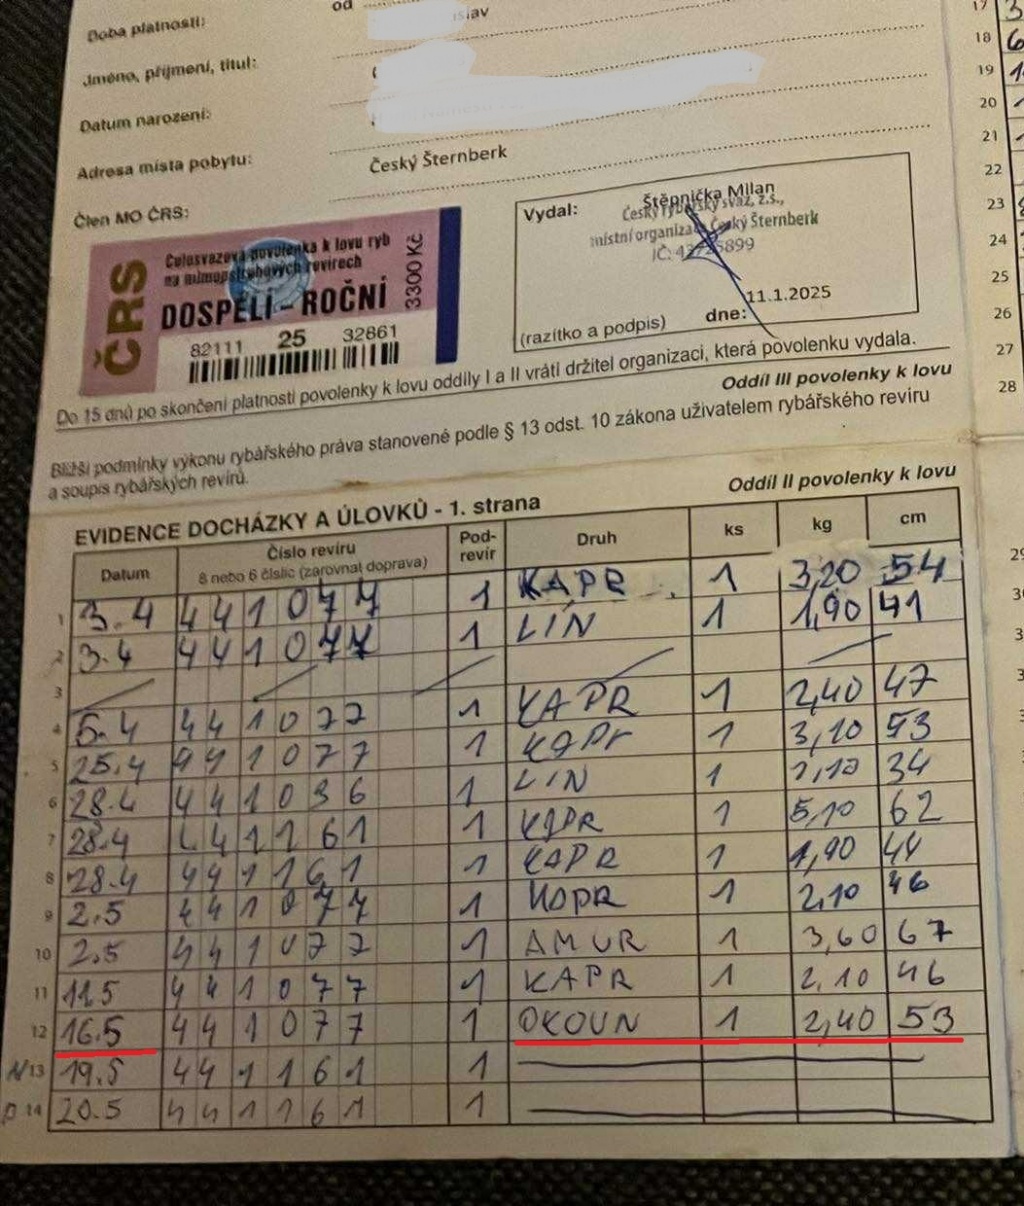 Doba platnosti: od
slav
Jméno, příjmení, titul:
Datum narození:
Adresa místa pobytu: Český Šternberk
Člen MO ČRS:
ČRS
Celosvazová povolenka k lovu ryb
na mimopstruhových revírech
DOSPĚLÍ - ROČNÍ
3300 Kč
82111 25 32861
Vydal: Štěpnička Milan
Český rybářský svaz, z.s.,
místní organizace Český Šternberk
11.1.2025
(razítko a podpis) dne:
Do 15 dnů po skončení platnosti povolenky k lovu oddíly I a II vrátí držitel organizaci, která povolenku vydala.
Oddíl III povolenky k lovu
Bližší podmínky výkonu rybářského práva stanovené podle § 13 odst. 10 zákona uživatelem rybářského revíru
a soupis rybářských revírů.
Oddíl II povolenky k lovu
EVIDENCE DOCHÁZKY A ÚLOVKŮ - 1. strana
Datum Číslo revíru Pod- Druh ks kg cm
8 nebo 6 číslic (zarovnat doprava) revír
1 3.4 441077 1 KAPR 1 3,20 54
2 3.4 441077 1 LÍN 1 1,90 41
3
4 5.4 441077 1 KAPR 1 2,40 47
5 25.4 441077 1 KAPr 1 3,10 53
6 28.4 441036 1 LIN 1 1,10 34
7 28.4 441161 1 KAPR 1 5,10 62
8 28.4 441161 1 KAPR 1 1,90 44
9 2.5 441077 1 KAPR 1 2,10 46
10 2.5 441077 1 AMUR 1 3,60 67
11 11.5 441077 1 KAPR 1 2,10 46
12 16.5 441077 1 OKOUN 1 2,40 53
N 13 19.5 441161 1
14 20.5 441161 1
17 3
18 6
19
20
21
22
23
24
25
26
27
28
29